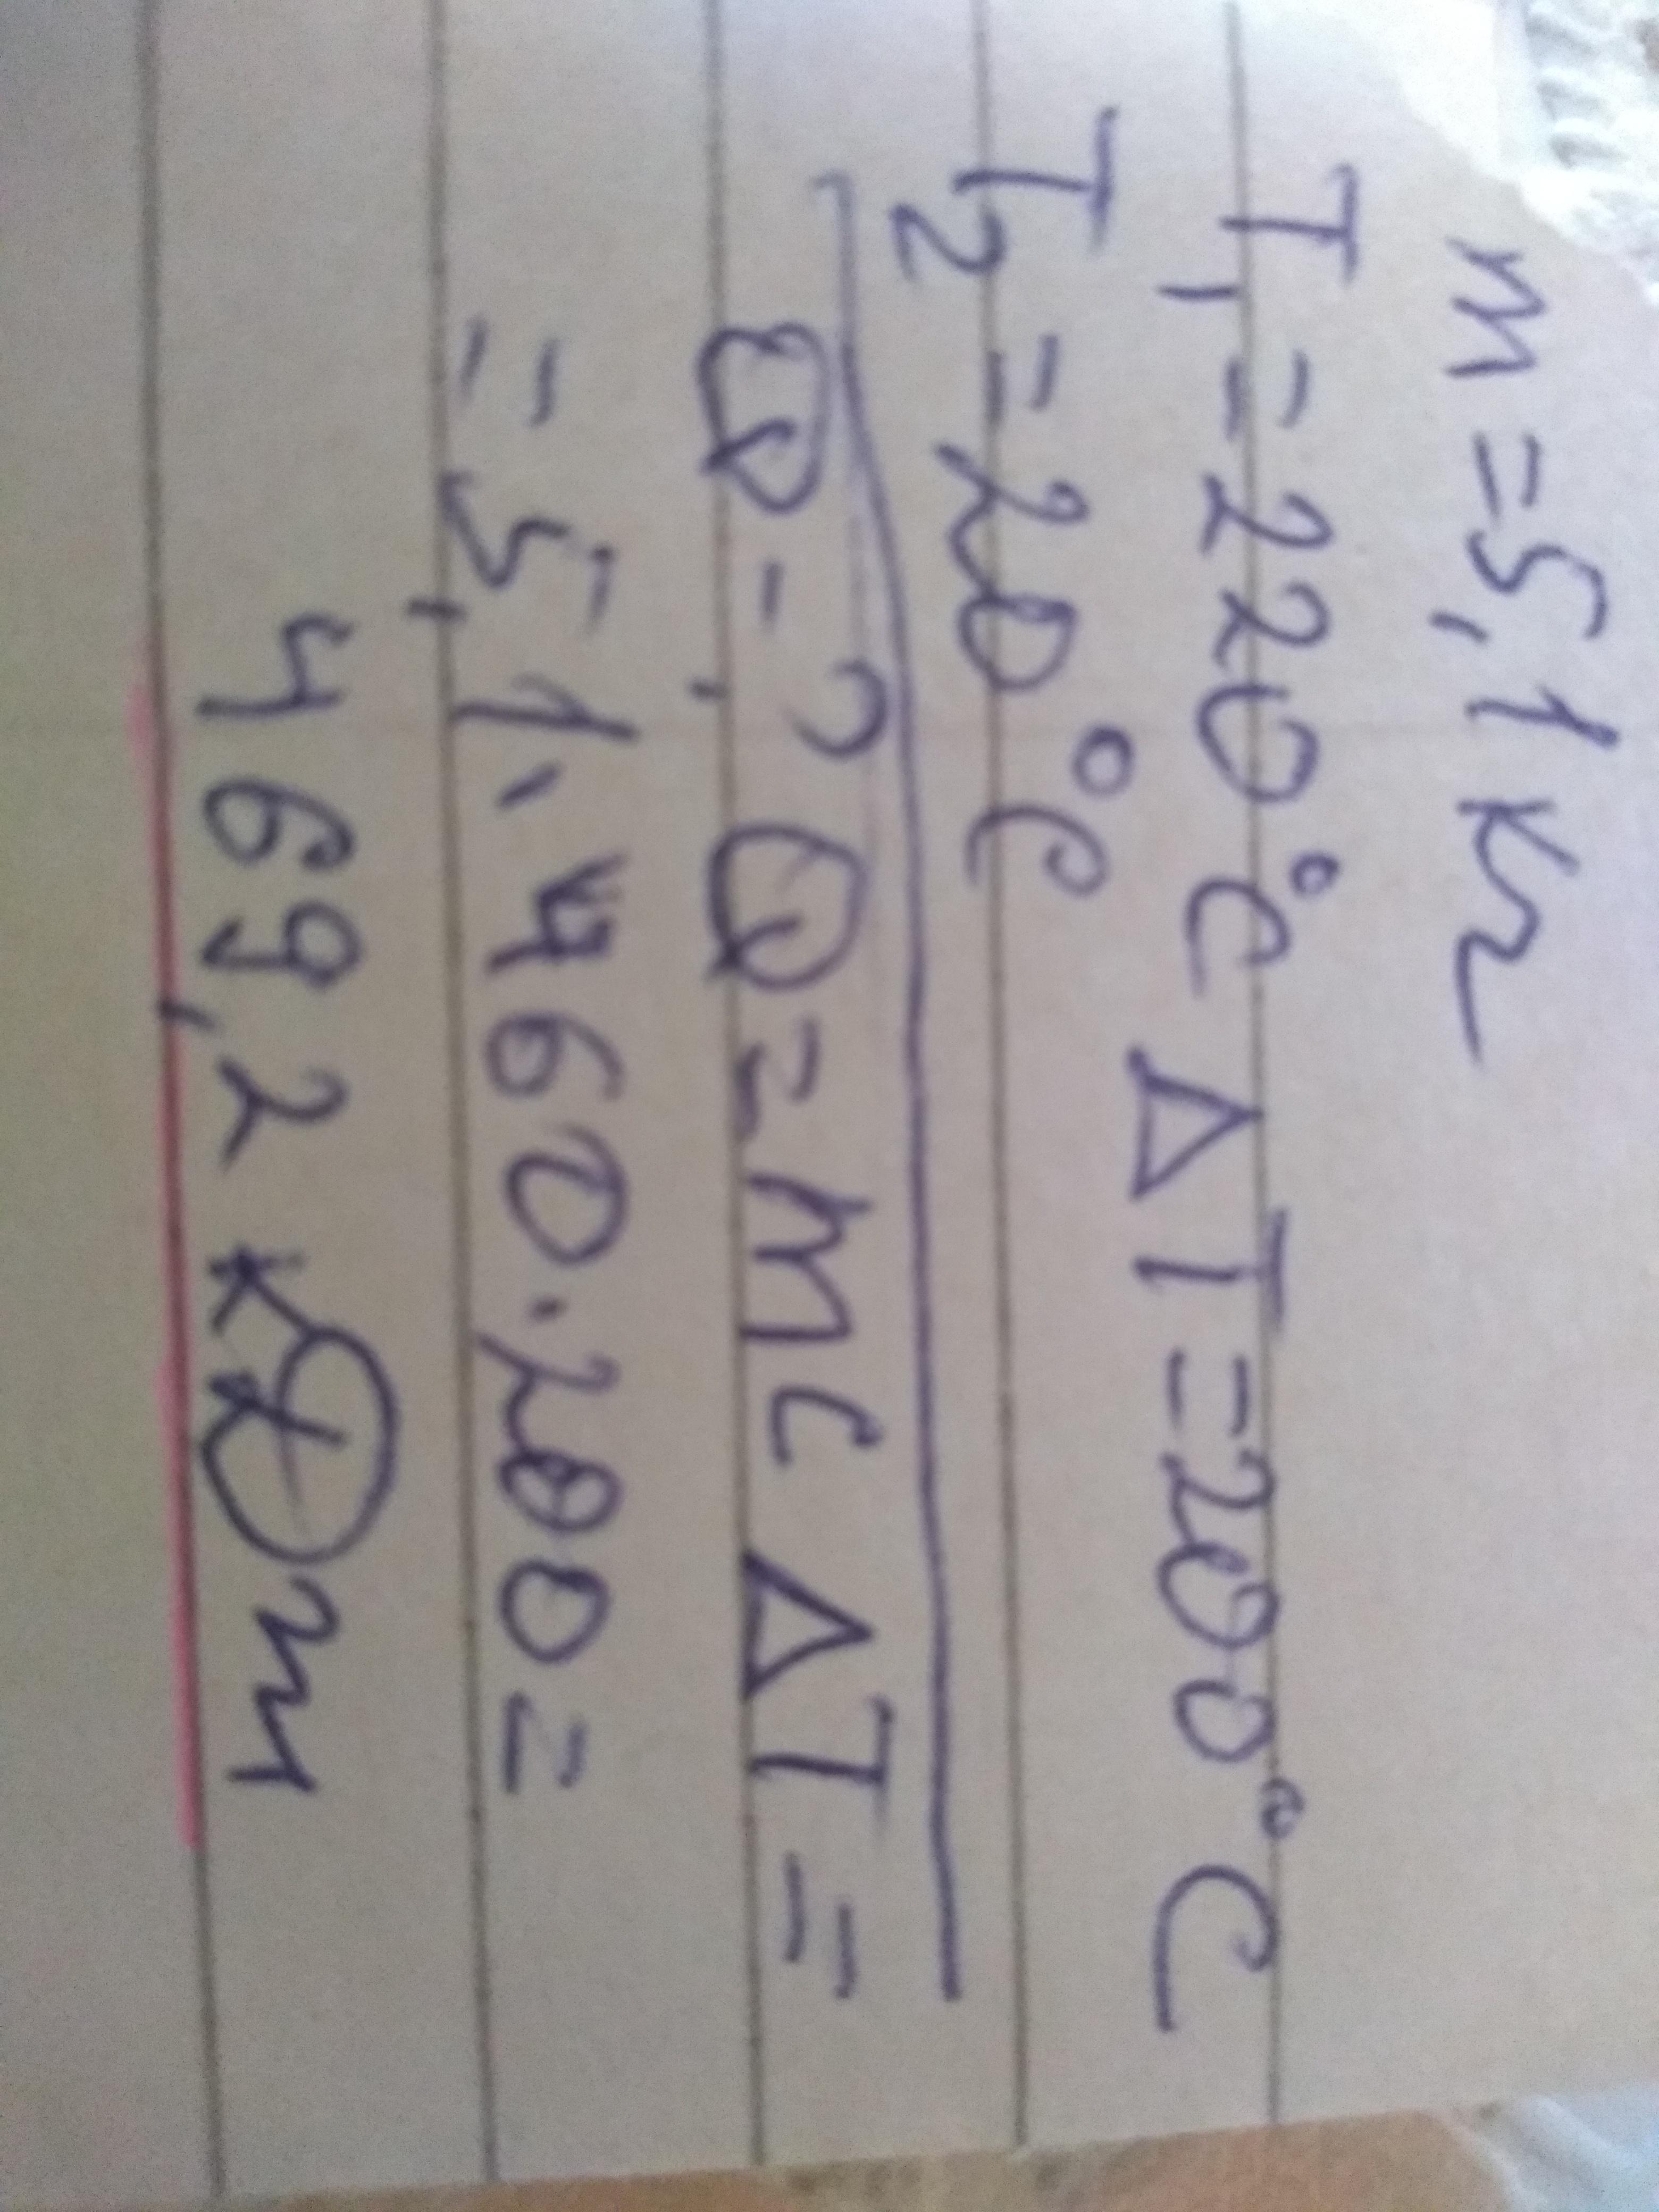 m = 5,1 кг
T₁ = 220°C ΔT = 200°C
T₂ = 20°C
Q - ? Q = mcΔT =
= 5,1 · 460 · 200 =
469,2 кДж